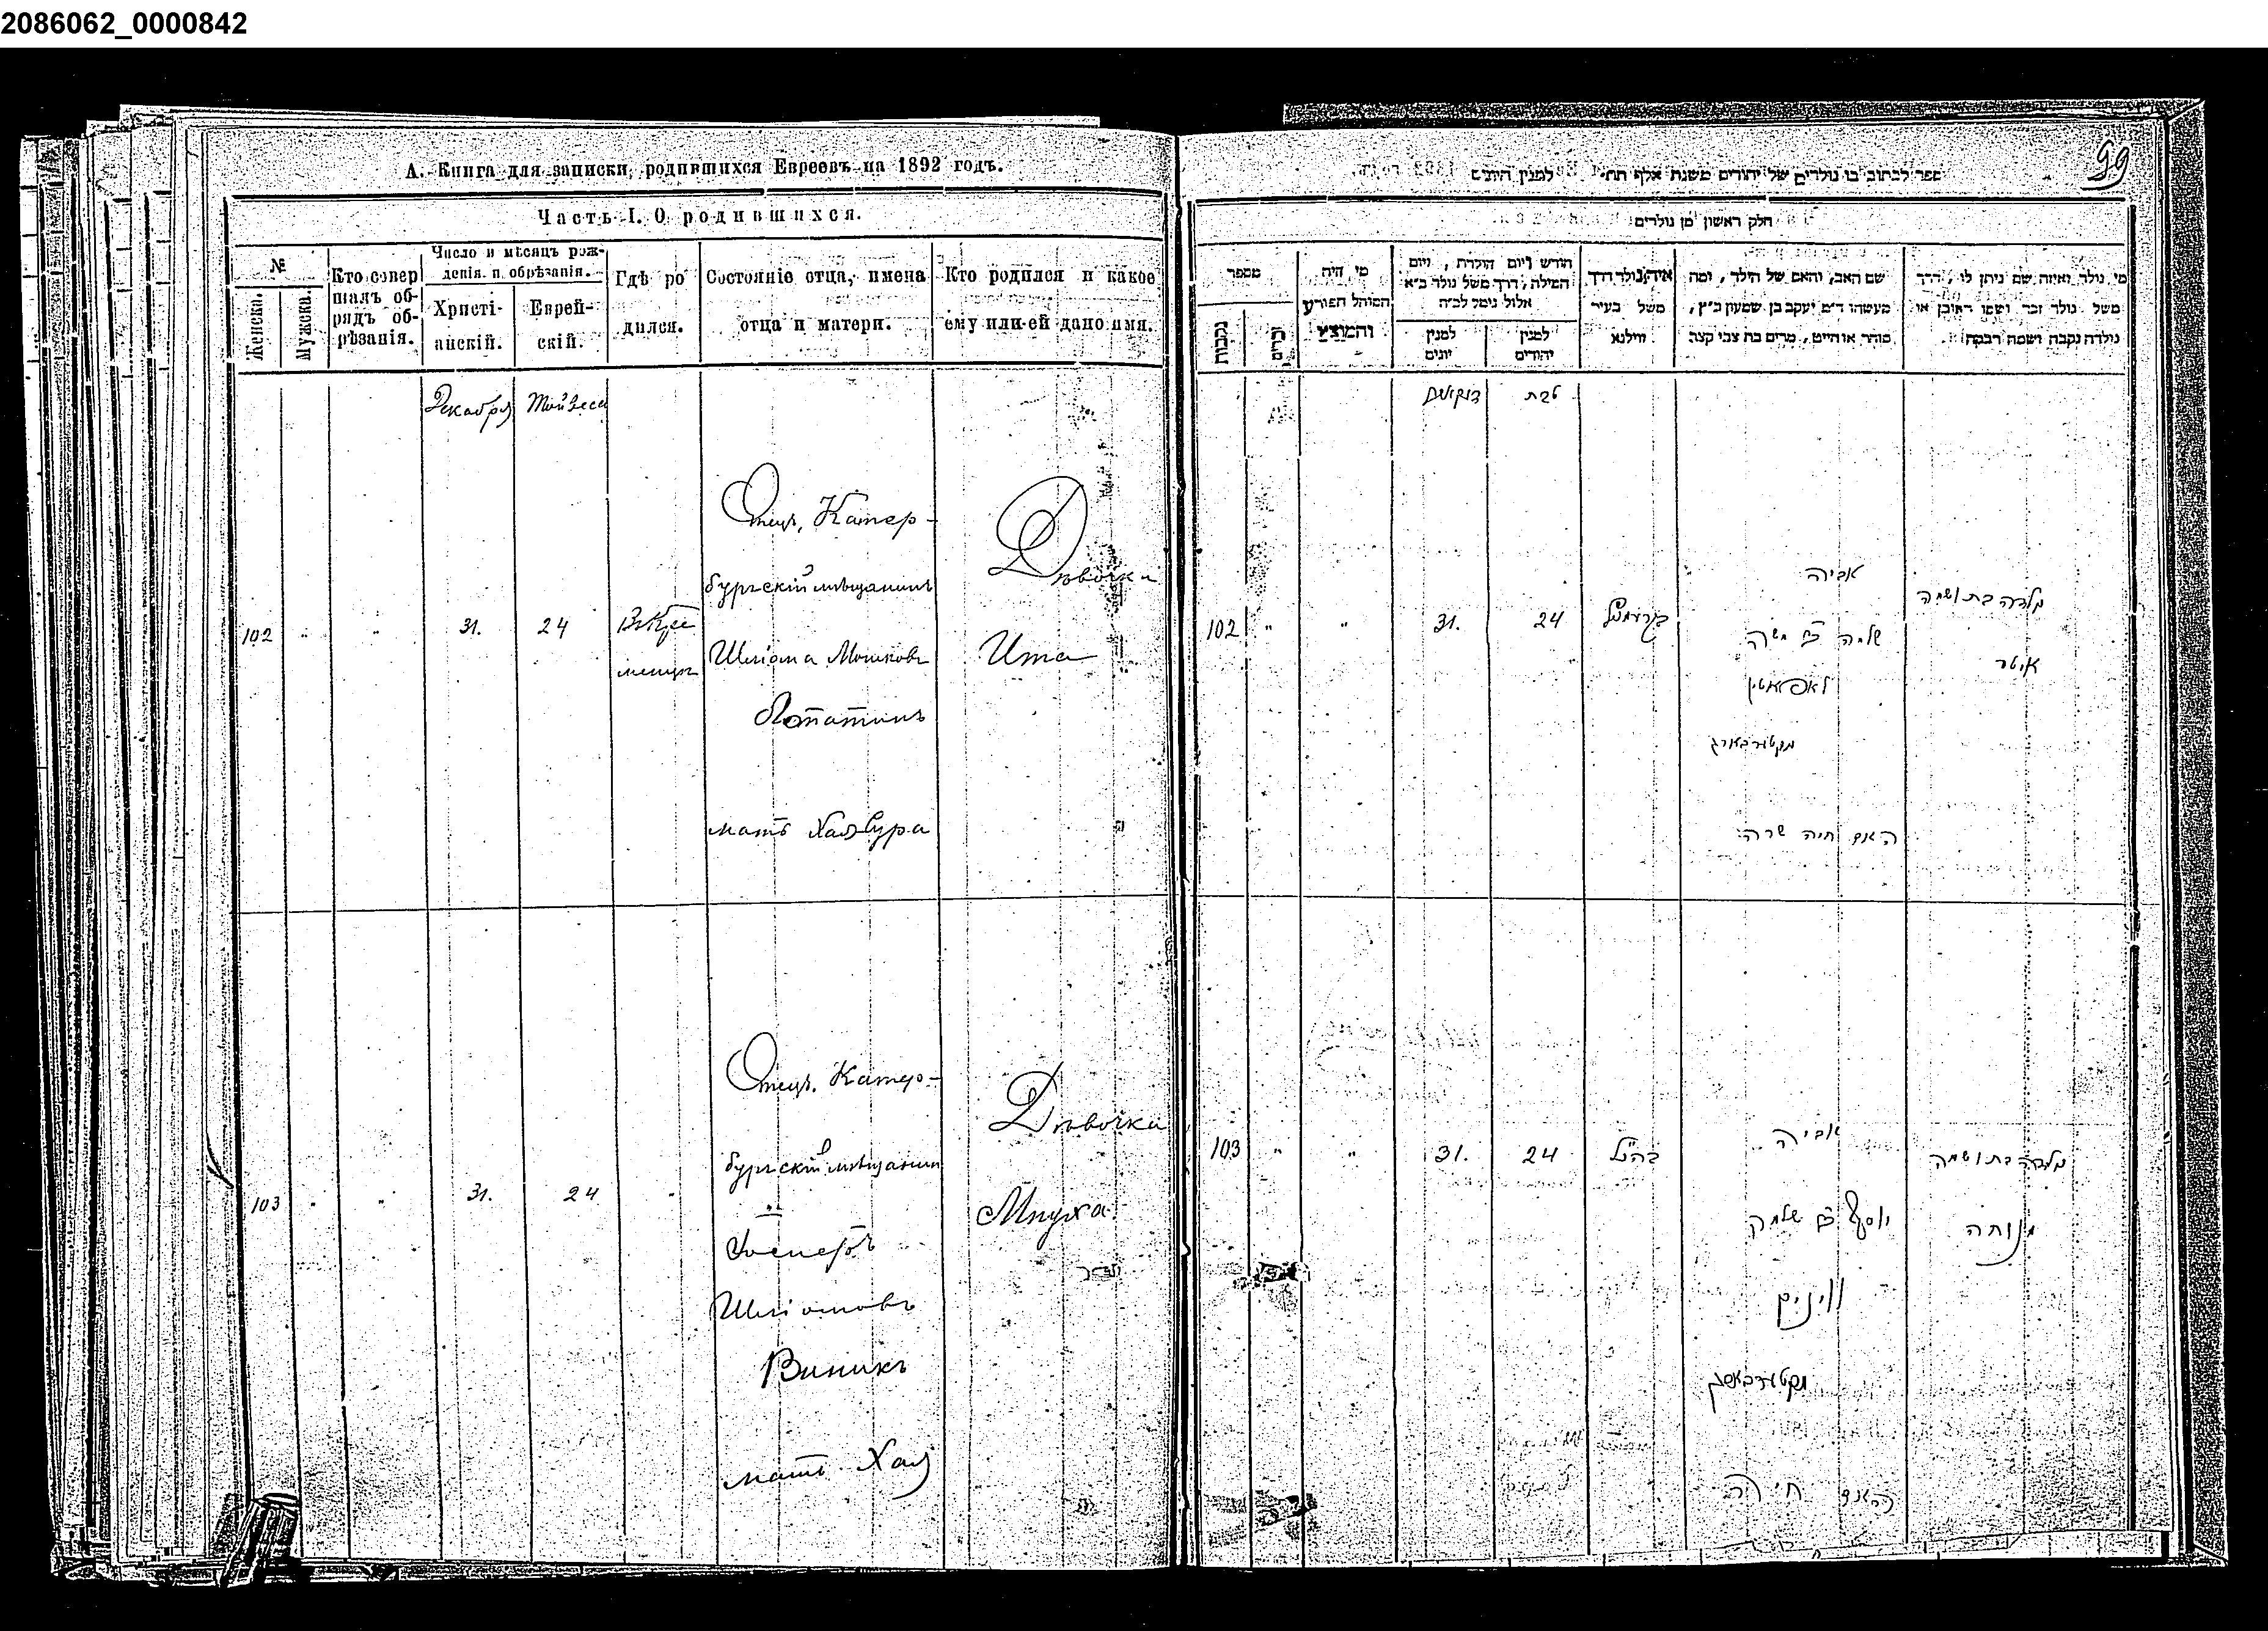 2086062_0000842
А. Книга для записки родившихся Евреевъ на 1892 годъ.
Часть I. О родившихся.
№
Женска.
Мужска.
Кто совер
шалъ об-
рядъ об-
рѣзанія.
Число и мѣсяцъ рож-
денія и обрѣзанія.
Христі-
анскій.
Еврей-
скій.
Гдѣ ро
дился.
Состояніе отца, имена
отца и матери.
Кто родился и какое
ему или-ей дано имя.
Декабря
102 " " 31. 24
Отецъ, Катер-
бургскій мѣщанинъ
Шліома Мошковъ
мать Хая Сура
Дѣвочка
Ита
103 " " 31. 24 "
Отецъ, Катер-
бургскій мѣщанин
ъ
Іосифъ
Шліомовъ
Виникъ
мать Хая
Дѣвочка
Мнуха
99
ספר לכתוב בו נולדים של יהודים משנת אלף תת" למנין היונים
חלק ראשון מן נולדים
מספר
נקבות
זכרים
מי היה
המוהל הפורע
והמוצץ
חודש ויום הולדת, ויום
המילה, דרך משל נולד ב"א
אלול נימל לכ"ה
למנין
יונים
למנין
יהודים
איה נולד דרך
משל בעיר
ווילנא
שם האב, והאם של הילד, ומה
מעשהו ד"מ יעקב בן שמעון כ"ץ,
סוחר או חייט, מרים בת צבי קצב
מי נולד ואיזה שם ניתן לו, דרך
משל נולד זכר ושמו ראובן או
נולדה נקבה ושמה רבקה
טבת
102 " " 31. 24
אביה
שלמה ב"ר משה
האם חיה שרה
נולדה בת ושמה
איטא
103 " " 31. 24 בהנ"ל
אביה
יוסף ב"ר שלמה
האם חיה
נולדה בת ושמה
מנוחה